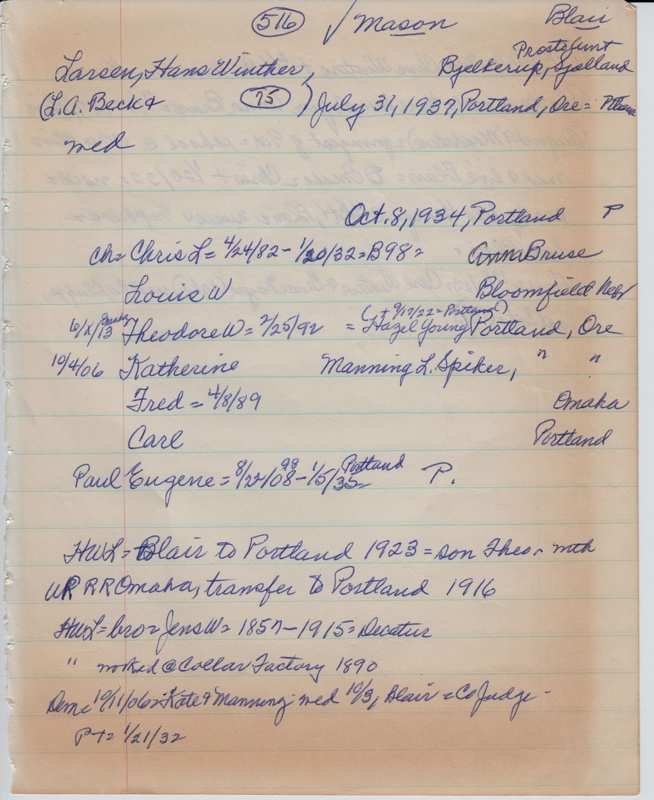 516 ✓ Mason Blair
Larsen, Hans Winther, Bjelkerup, Sjolland
(L.A. Beck+ 75 ) July 31, 1937, Portland, Ore =
med
Oct. 8, 1934, Portland P
Ch = Chris L = 4/24/82 - 1/20/32 = B98 = Ann Bruse
Louis W Bloomfield Nebr
(+ 9/17/22 = Portland)
6/x/13 Theodore W = 2/25/92 = Hazel Young Portland, Ore
10/4/06 Katherine Manning L. Spiker, " "
Fred = 4/8/89 Omaha
Carl Portland
Paul Eugene = - 1/5/35 = Portland P.
HWL = Blair to Portland 1923 = son Theo -
UP RR Omaha, transfer to Portland 1916
HWL = bro = Jens W = 1857 - 1915 = Decatur
" worked @ Collar Factory 1890
Dem = 10/11/06 = Kate & Manning med 10/3, Blair = Co Judge -
P T = 1/21/32